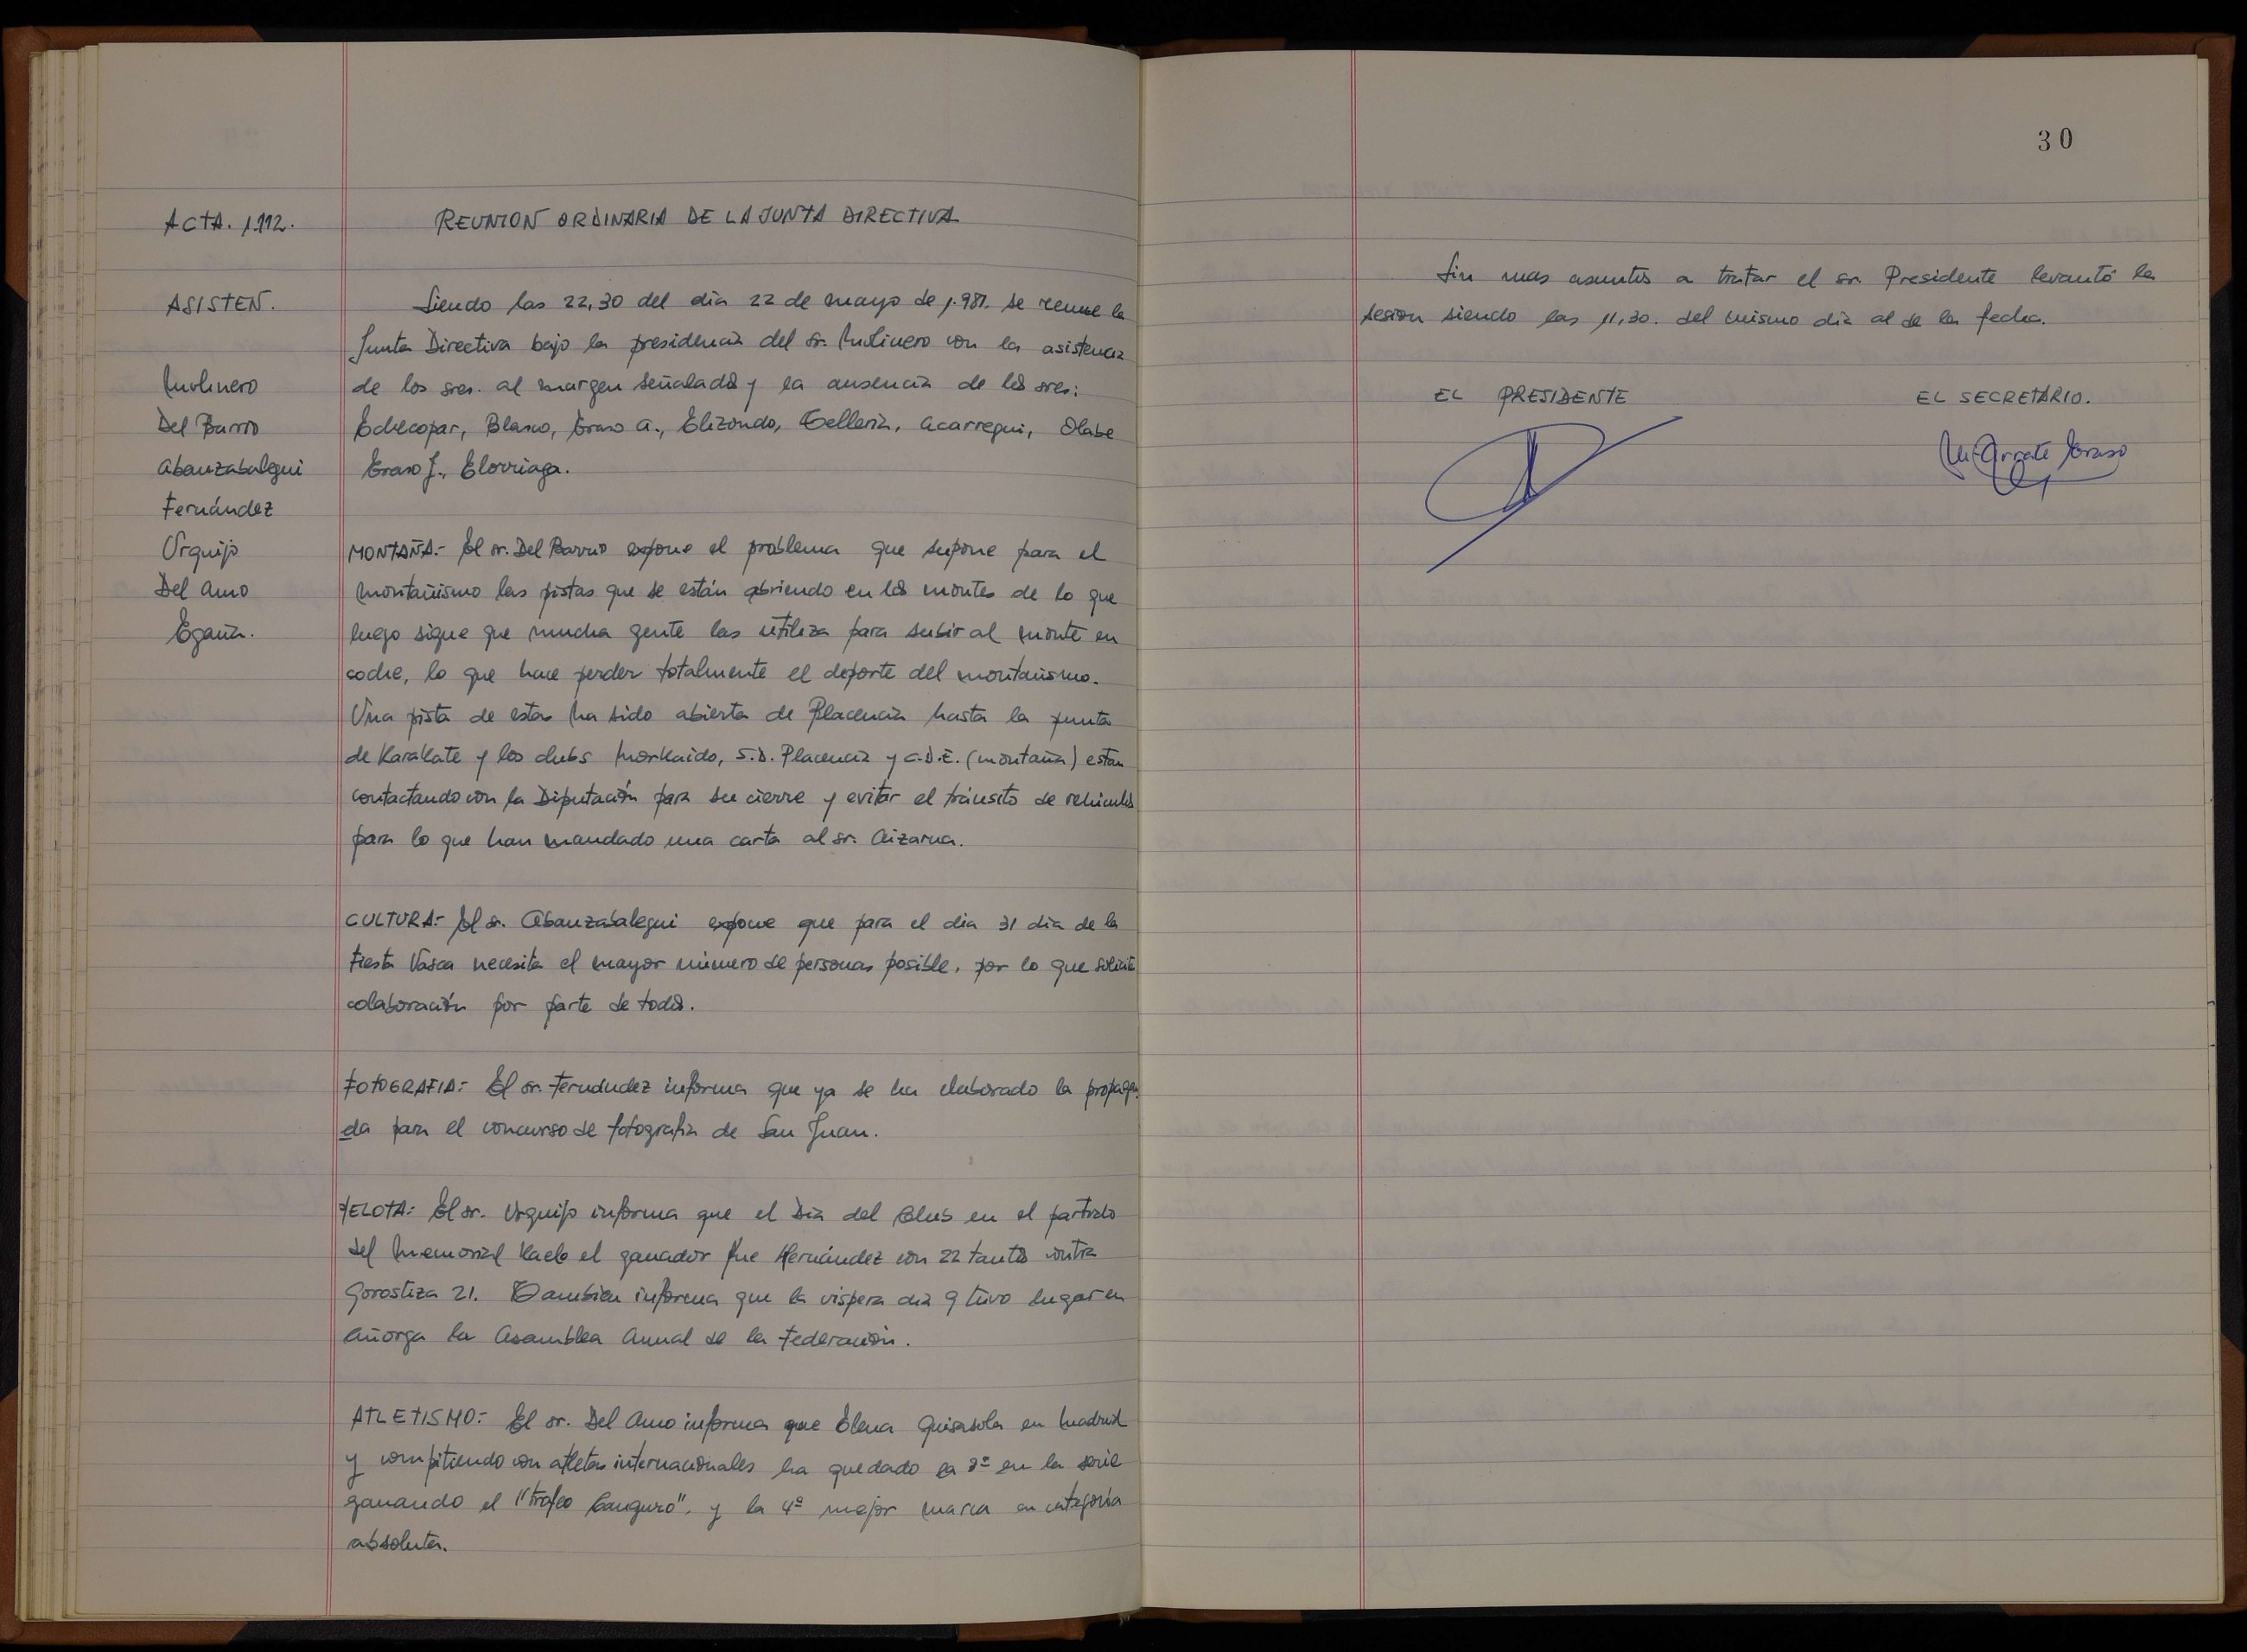 ACTA. 1.112.
REUNION ORDINARIA DE LA JUNTA DIRECTIVA
ASISTEN.
Molinero
Del Barrio
Abanzabalegui
Fernández
Urquijo
Del Amo
Egaña.
Siendo las 22,30 del día 22 de mayo de 1.981. se reune la
Junta Directiva bajo la presidencia del sr. Molinero con la asistencia
de los sres. al margen señalados y la ausencia de los sres:
Echecopar, Blasco, Eraso A., Elizondo, Telleria, Acarregui, Olabe
Eraso J., Elorriaga.
MONTAÑA.- El sr. Del Barrio expone el problema que supone para el
montañismo las pistas que se están abriendo en los montes de lo que
luego sigue que mucha gente las utiliza para subir al monte en
coche, lo que hace perder totalmente el deporte del montañismo.
Una pista de estas ha sido abierta de Placencia hasta la punta
de Karakate y los clubs Morkaido, S.D. Placencia y C.D.E. (montaña) estan
contactando con la Diputación para su cierre y evitar el tránsito de vehiculos
para lo que han mandado una carta al sr. Aizarna.
CULTURA:- El sr. Abanzabalegui expone que para el dia 31 dia de la
Fiesta Vasca necesita el mayor número de personas posible, por lo que solicita
colaboración por parte de todos.
FOTOGRAFIA:- El sr. Fernández informa que ya se ha elaborado la propagan
da para el concurso de fotografia de San Juan.
PELOTA:- El sr. Urquijo informa que el Dia del Club en el partido
del Memorial Kaelo el ganador fue Hernández con 22 tantos contra
Gorostiza 21. Tambien informa que la vispera dia 9 tuvo lugar en
Añorga la Asamblea Anual de la Federación.
ATLETISMO:- El sr. Del Amo informa que Elena Guisasola en Madrid
y compitiendo con atletas internacionales ha quedado la 3ª en la serie
ganando el "trofeo Canguro". y la 4ª mejor marca en categoria
absoluta.
30
Sin mas asuntos a tratar el sr. Presidente levantó la
sesion siendo las 11,30. del mismo dia al de la fecha.
EL PRESIDENTE
EL SECRETARIO.
M. Arrate Eraso